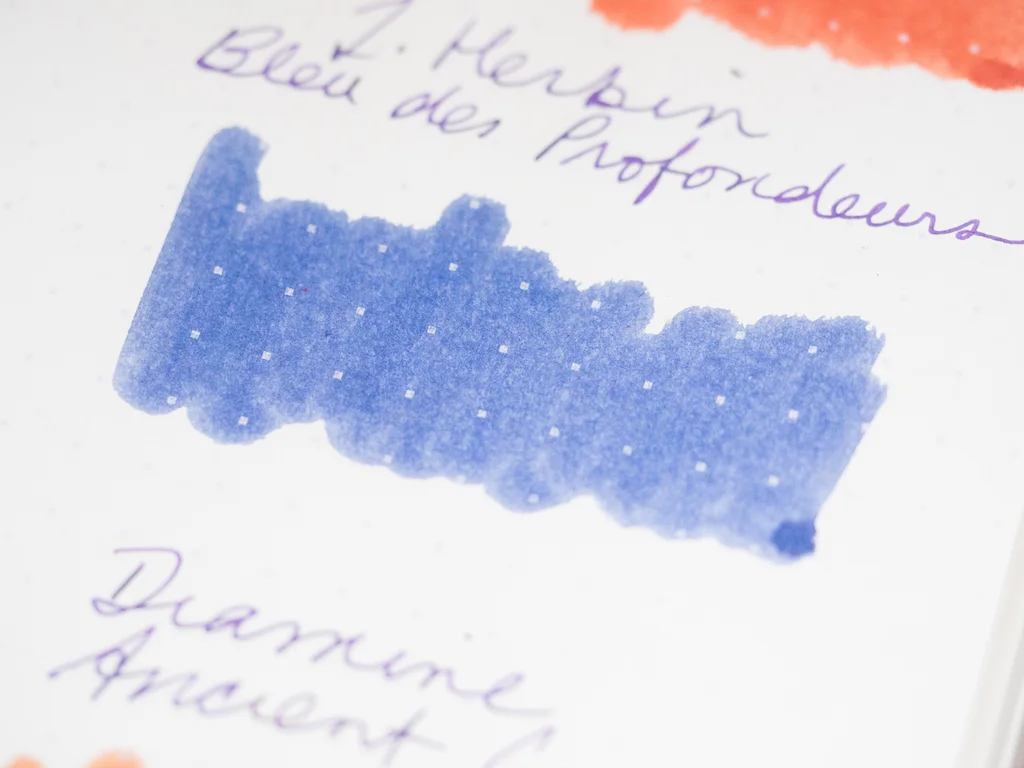 J. Herbin
Bleu des Profondeurs
Diamine
Ancient